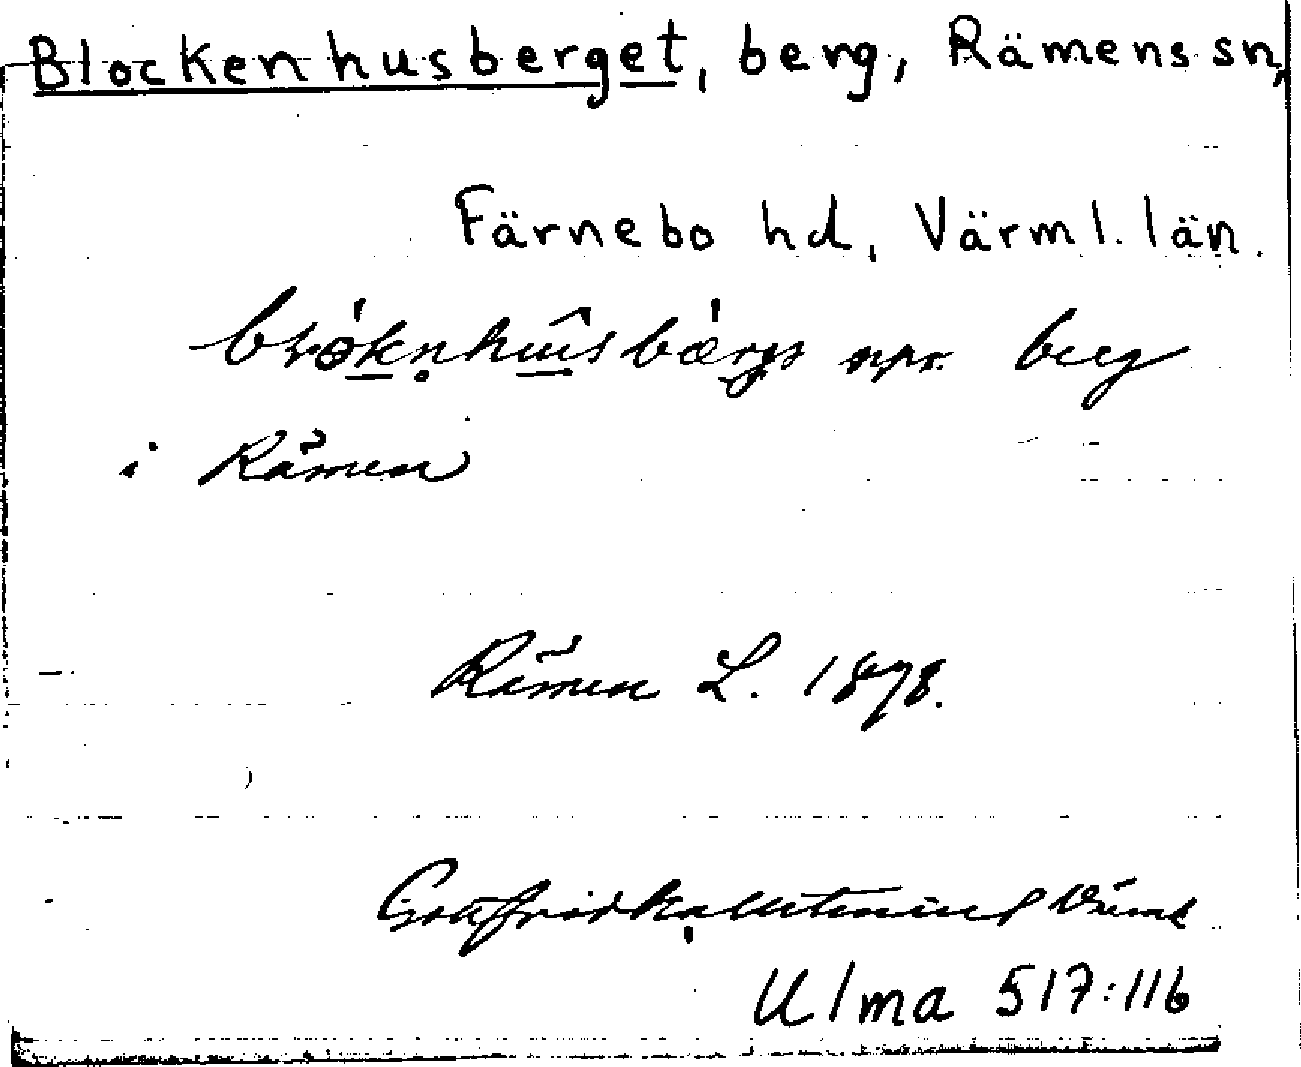 Blockenhusberget, berg, Rämens sn,
Färnebo hd, Värml. län.
npr. berg
i Rämen
Rämen L. 1878.
Gottfrid Kallstenius Värml
Ulma 517:116